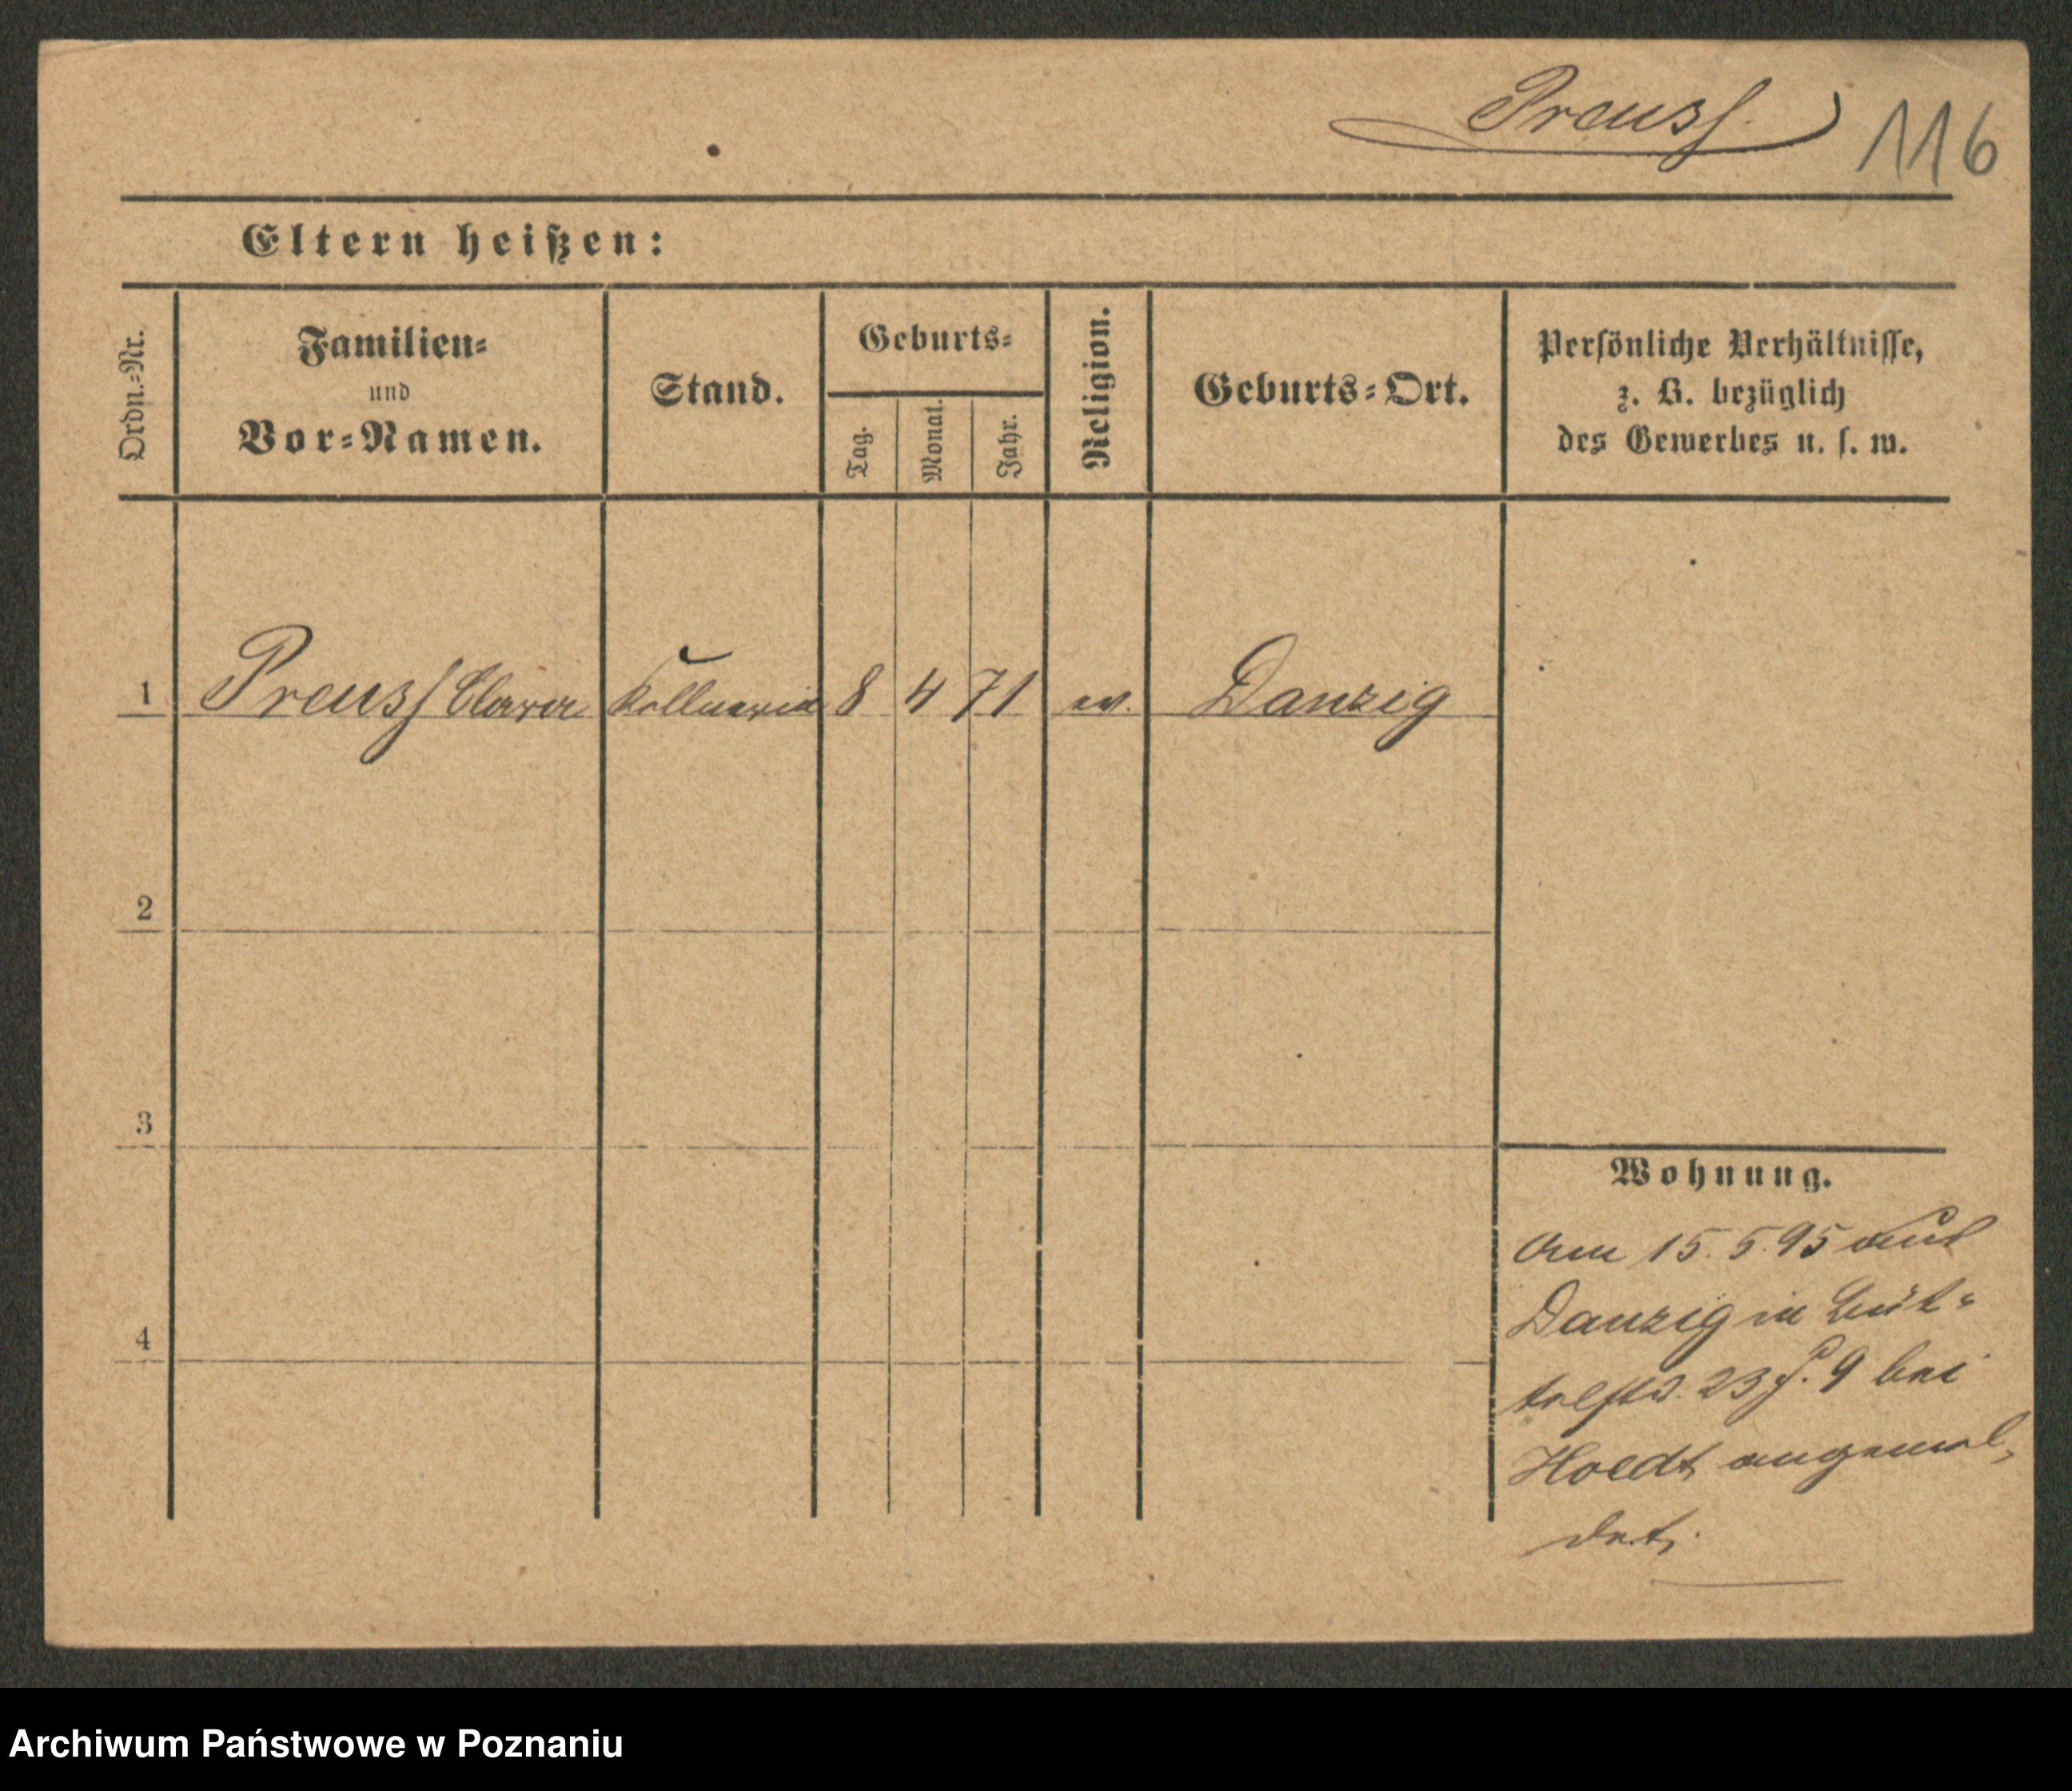 Preuss.
116
Eltern heißen:
Ordn.-Nr.
Familien-
und
Vor-Namen.
Stand.
Geburts-
Tag.
Monat.
Jahr.
Religion.
Geburts-Ort.
Persönliche Verhältnisse,
z. B. bezüglich
des Gewerbes u. s. w.
1 Preuss Clara Kellnerin 8 4 71 ev. Danzig
2
3
4
Wohnung.
Am 15.5.95 aus
Danzig in Büt-
telstr. 23 J. 9 bei
Hoedt angemel-
det.
Archiwum Państwowe w Poznaniu